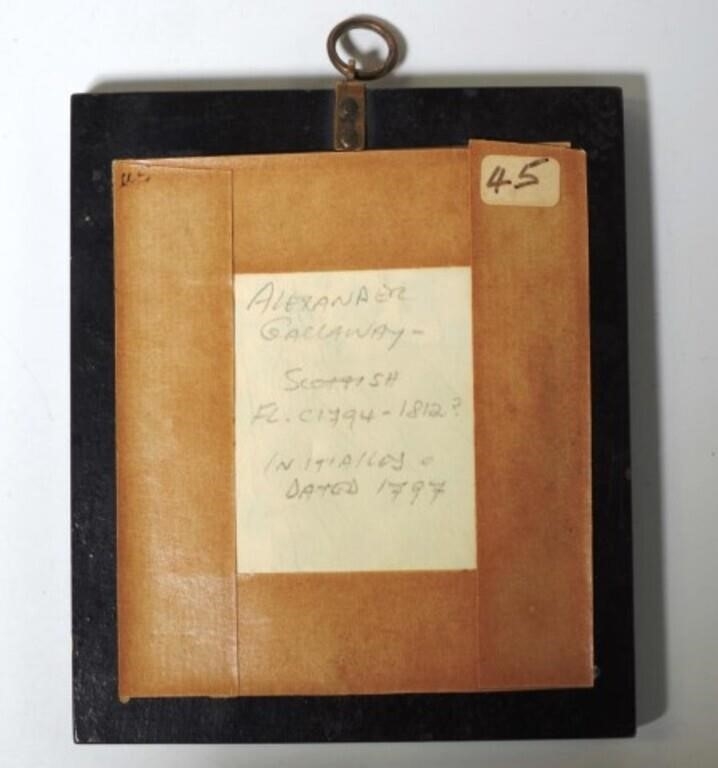 45
ALEXANDER
GALLAWAY -
SCOTTISH
FL. C1794 - 1812?
INITIALLED &
DATED 1797